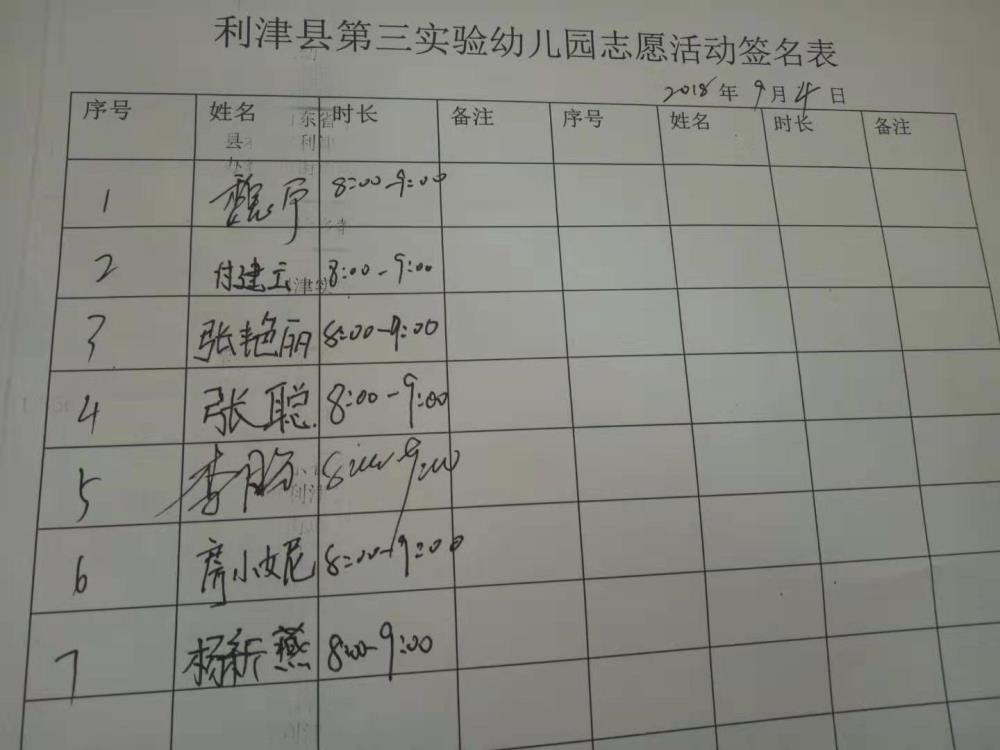 利津县第三实验幼儿园志愿活动签名表
2018年9月4日
序号 姓名 时长 备注 序号 姓名 时长 备注
1 8:00-9:00
2 付建云 8:00-9:00
3 张艳丽 8:00-9:00
4 张聪 8:00-9:00
5 李 8:00-9:00
6 房小妮 8:00-9:00
7 杨新燕 8:00-9:00